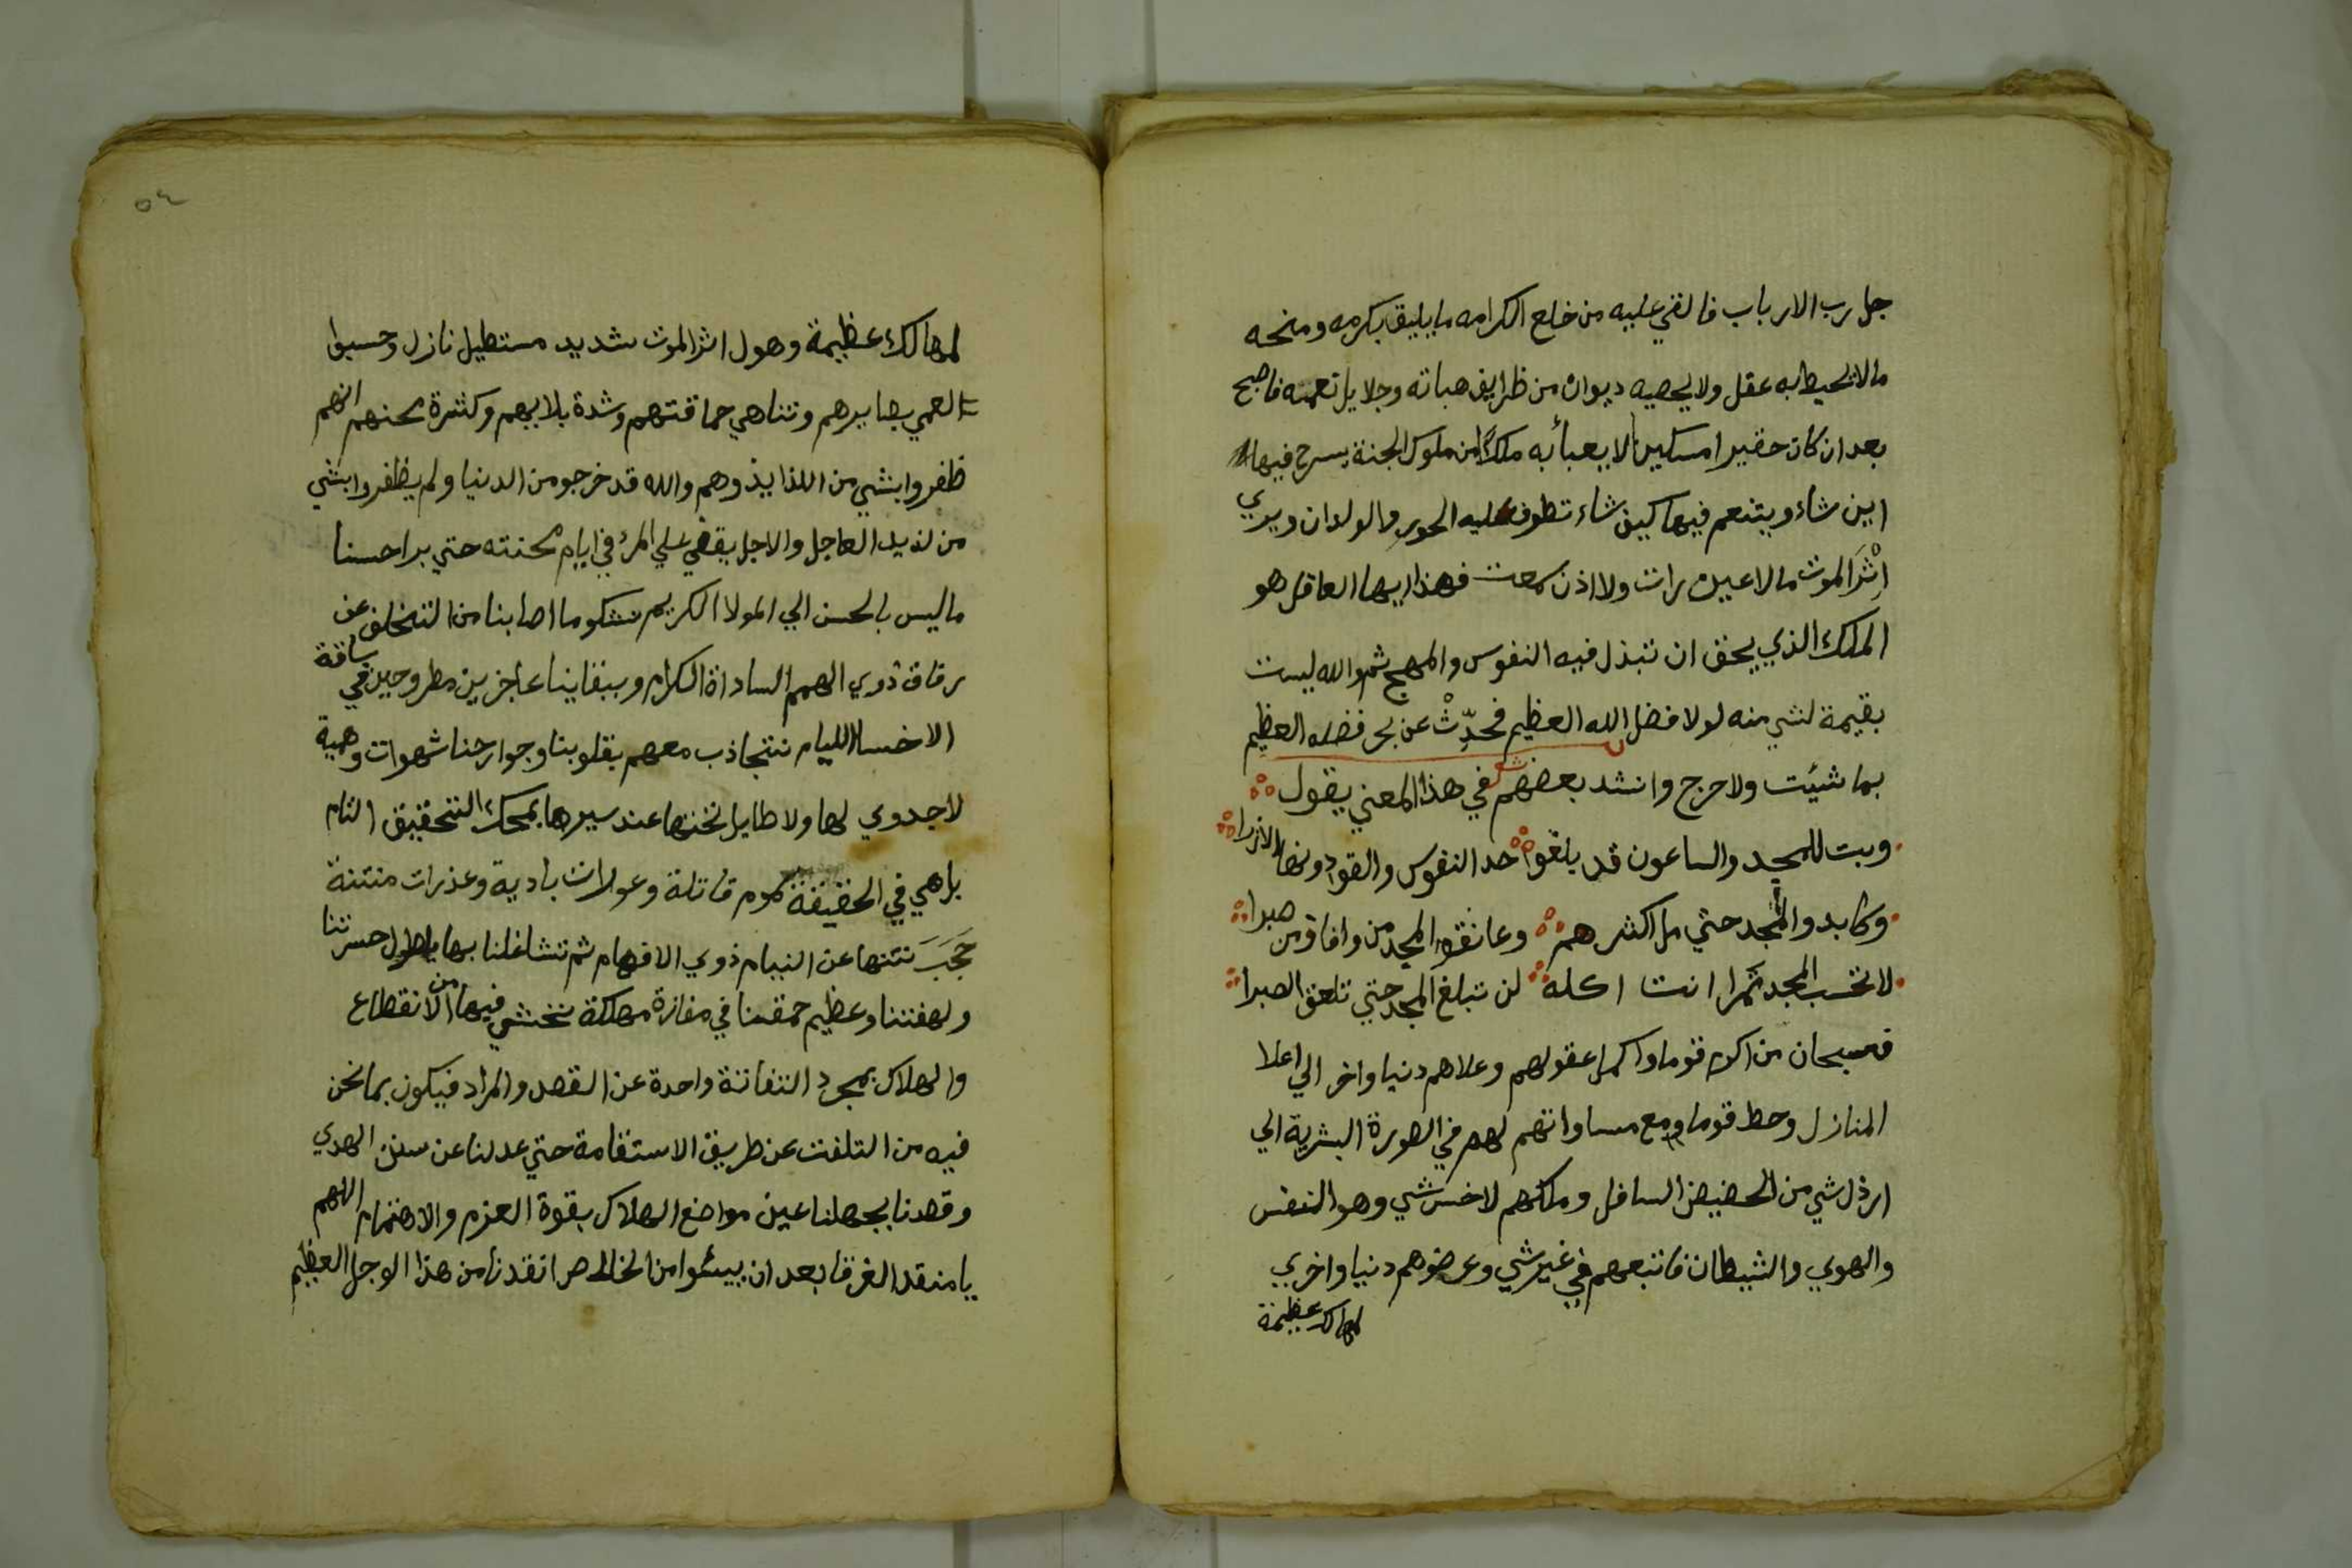 جل رب الارباب فالقي عليه من خلع الكرامه ما يليق بكرمه ومنحه
مالا يحيط به عقل ولا يحصيه ديوان من ظرايف هباته وجلايل نعمه فاصبح
بعد ان كان حقيرا مسكينا لا يعبأ به ملكا من ملوك الجنة يسرح فيها
اين شاء ويتنعم فيها كيف شاء تطوف عليه الحور والولدان ويري
اِثْرَ الموت مالا عين رات ولا اذن سمعت فهذا ايها العاقل هو
الملك الذي يحق ان تبذل فيه النفوس والمهج ثم والله ليست
بقيمة لشي منه لولا فضل الله العظيم فحدِّثْ عن بحر فضله العظيم
بما شئت ولا حرج وانشد بعضهم في هذا المعني يقول شعر
وبت للمجد والساعون قد بلغوا حد النفوس والقوا دونها الازرا
وكابدوا المجد حتي مل اكثرهم وعانقوا المجد من وافا ومن صبرا
لا تحسب المجد تمرا انت اكله لن تبلغ المجد حتي تلعق الصبرا
فسبحان من اكرم قوما واكمل عقولهم وعلاهم دنيا واخر الي اعلا
المنازل وحط قوما ومع مساواتهم لهم في الصورة البشرية الي
ارذل شي من الحضيض السافل وملكهم لاخس شي وهو النفس
والهوي والشيطان فاتبعهم في غير شي وعرضوهم دنيا واخري
لمهالك عظيمة
٥٤
لمهالك عظيمة وهول اثر الموت شديد مستطيل نازل وحسبوا
لعمي بصايرهم وتناهي حماقتهم وشدة بلاييهم وكثرة محنهم انهم
ظفروا بشي من اللذايذ وهم والله قد خرجو من الدنيا ولم يظفروا بشي
من لذيذ العاجل والاجل يقضي علي المرء في ايام محنته حتي يرا حسنا
ما ليس بالحسن الي المولا الكريم نشكو ما اصابنا من التخلف عن
رفاق ذوي الهمم السادة الكرام وببقاينا عاجزين مطروحين في ساقة
الاخسا الليام نتجاذب معهم بقلوبنا وجوارحنا شهوات وهمية
لا جدوي لها ولا طايل تحتها عند سيرها بمحك التحقيق التام
بل هي في الحقيقة سموم قاتلة وعورات بادية وعذرات منتنة
حَجَبَ نتنها عن النيام ذوي الافهام ثم تشاغلنا بها يا طول حسرتنا
ولهفتنا وعظيم حمقنا في مفازة مهلكة نخشي فيها من الانقطاع
والهلاك بمجرد التفاتة واحدة عن القصد والمراد فيكون بما نحن
فيه من التلفت عن طريق الاستقامة حتي عدلنا عن سنن الهدي
وقصدنا بجهلنا عين مواضع الهلاك بقوة العزم والاهتمام اللهم
يا منقد الغرقا بعد ان ييئسوا من الخلاص انقدنا من هذا الوجل العظيم